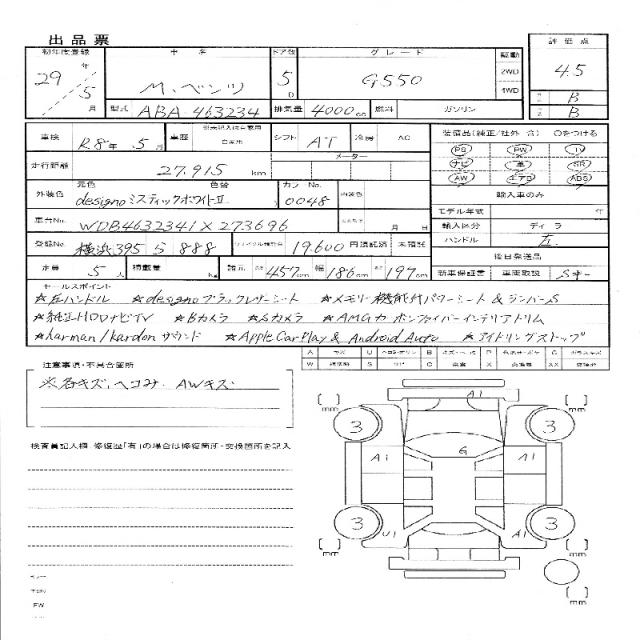 出品票
初年度登録 車名 ドア数 グレード 駆動 評価点
29年 5月 M.ベンツ 5D G550 2WD 4WD 4.5
B
B
型式 ABA 463234 排気量 4000cc 燃料 ガソリン
車検 R8年 5月 車歴 自家用 シフト AT 冷房 AC 装備品(純正/社外 含) ○をつける
PS PW TV
ナビ 革 SR
AW エアB ABS
走行距離 27,915 km メーター
外装色 元色 designo ミスティックホワイトⅡ 色替 カラーNo. 0048 内装色 輸入車のみ
車台No. WDB4632341X273696 月 日 モデル年式 年
登録No. 横浜 395 ら 888 リサイクル預託金 19,600 円 預託済 未預託 輸入区分 ディーラ
ハンドル 左
定員 5人 積載量 kg 諸元 長さ 457cm 幅 186cm 高さ 197cm 後日発送品
新車保証書 車両取説
セールスポイント
☆左ハンドル ☆designoブラックレザーシート ☆メモリー機能付パワーシート & ランバーS
☆純正HDDナビTV ☆Bカメラ ☆Sカメラ ☆AMGカーボンファイバーインテリアトリム
☆harman/kardonサウンド ☆Apple CarPlay & Android Auto ☆アイドリングストップ
注意事項・不具合箇所
※各キズ、ヘコみ. AWキズ.
検査員記入欄 修復歴「有」の場合は修復箇所・交換箇所を記入
A1
mm mm
3 3
G
A1 A1
3 3
U1 A1
mm mm
mm